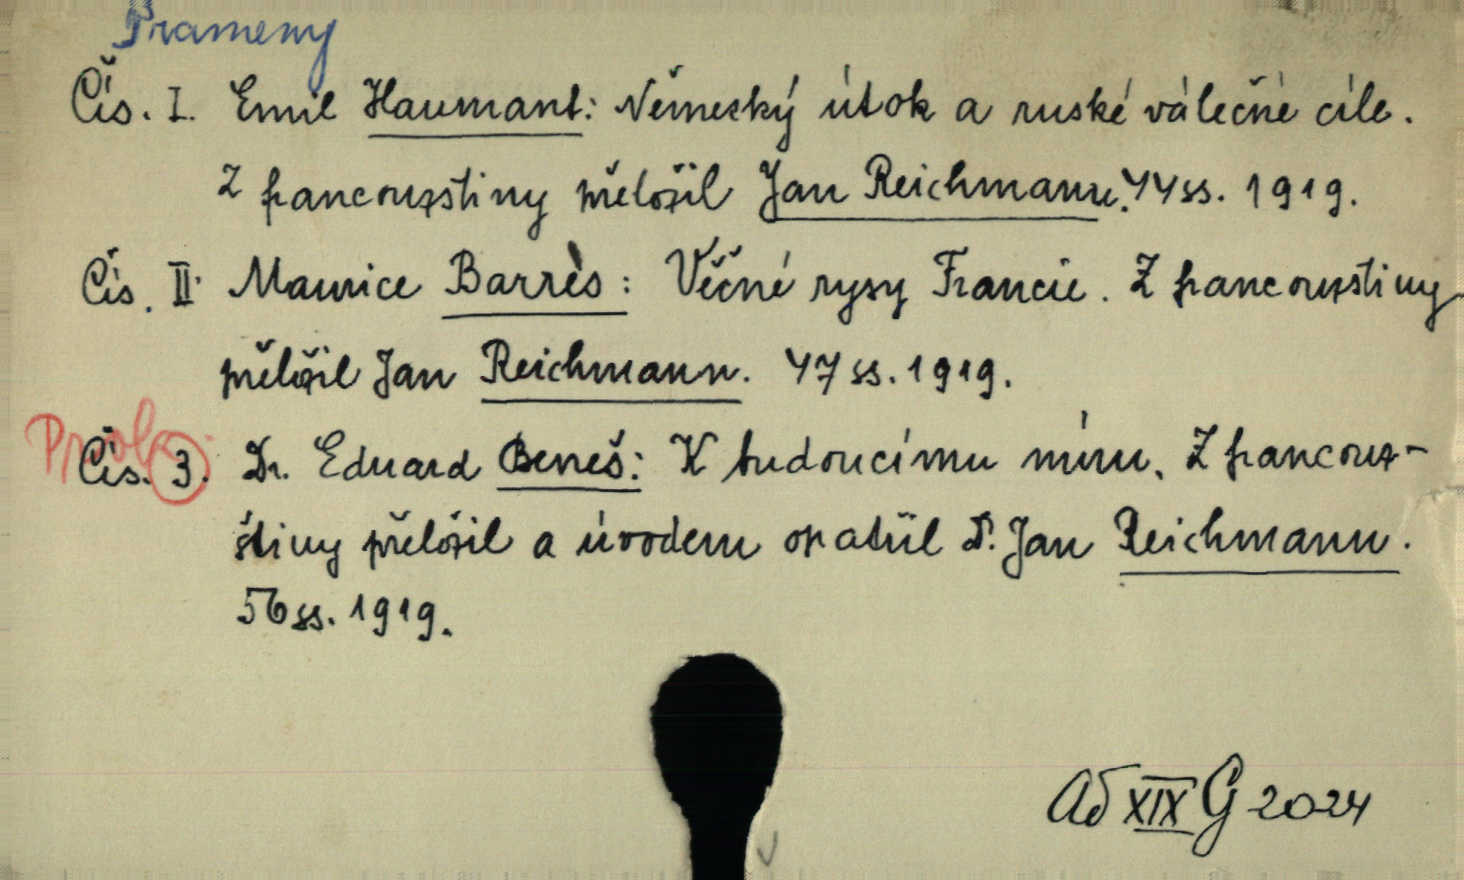 Prameny
Čís. I. Emil Haumant: Německý útok a ruské válečné cíle.
Z francouzštiny přeložil Jan Reichmann. 44 ss. 1919.
Čís. II. Maurice Barrès: Věčné rysy Francie. Z francouzštiny
přeložil Jan Reichmann. 47 ss. 1919.
Čís. 3. Dr. Eduard Beneš: K budoucímu míru. Z francouz-
štiny přeložil a úvodem opatřil Dr. Jan Reichmann.
56 ss. 1919.
Ad XIX G 2024